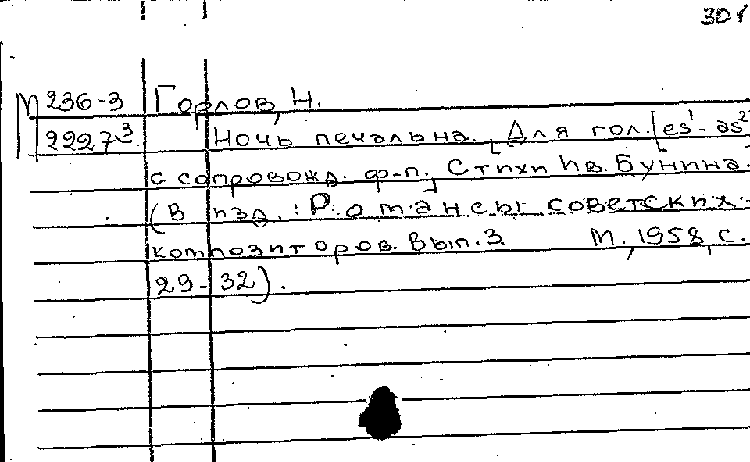 301
М 236-3 Горлов, Н.
2227³ Ночь печальна. [Для гол. [es¹-as²]
с сопровожд. ф-п.] Стихи Ив. Бунина.
(В изд.: Романсы советских
композиторов. Вып. 3 М., 1958, с.
29-32).